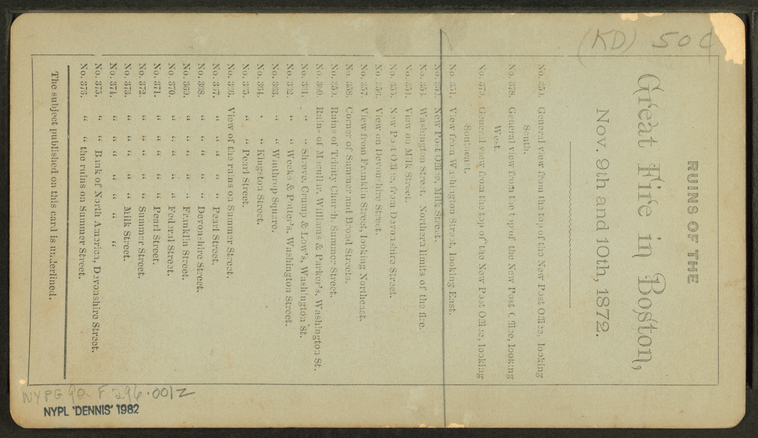 (KD) 50c
RUINS OF THE
Great Fire in Boston,
Nov. 9th and 10th, 1872.
General view from the top of the New Post Office, looking
South.
No. 378. General view from the top of the New Post Office, looking
West.
General view from the top of the New Post Office, looking
View from Washington Street, looking East.
New Post Office, Milk Street.
Washington Street. Northern limits of the fire.
View on Milk Street.
New Post Office, from Devonshire Street.
View on Devonshire Street.
View from Franklin Street, looking Northeast.
No. 358. Corner of Summer and Broad Streets.
No. 359. Ruins of Trinity Church, Summer Street.
No. 360. Ruins of Macullar, Williams & Parker's, Washington St.
No. 361. " " Shreve, Crump & Low's, Washington St.
No. 362. " " Weeks & Potter's, Washington Street.
No. 363. " " Winthrop Square.
No. 364. " " Kingston Street.
No. 365. " " Pearl Street.
No. 366. View of the ruins on Summer Street.
No. 367. " " " " Pearl Street.
No. 368. " " " " Devonshire Street.
No. 369. " " " " Franklin Street.
No. 370. " " " " Federal Street.
No. 371. " " " " Pearl Street.
No. 372. " " " " Summer Street.
No. 373. " " " " Milk Street.
No. 374. " " " " "
No. 375. " Bank of North America, Devonshire Street.
No. 376. " the ruins on Summer Street.
The subject published on this card is underlined.
NYPG 90-F296.001Z
NYPL 'DENNIS' 1982